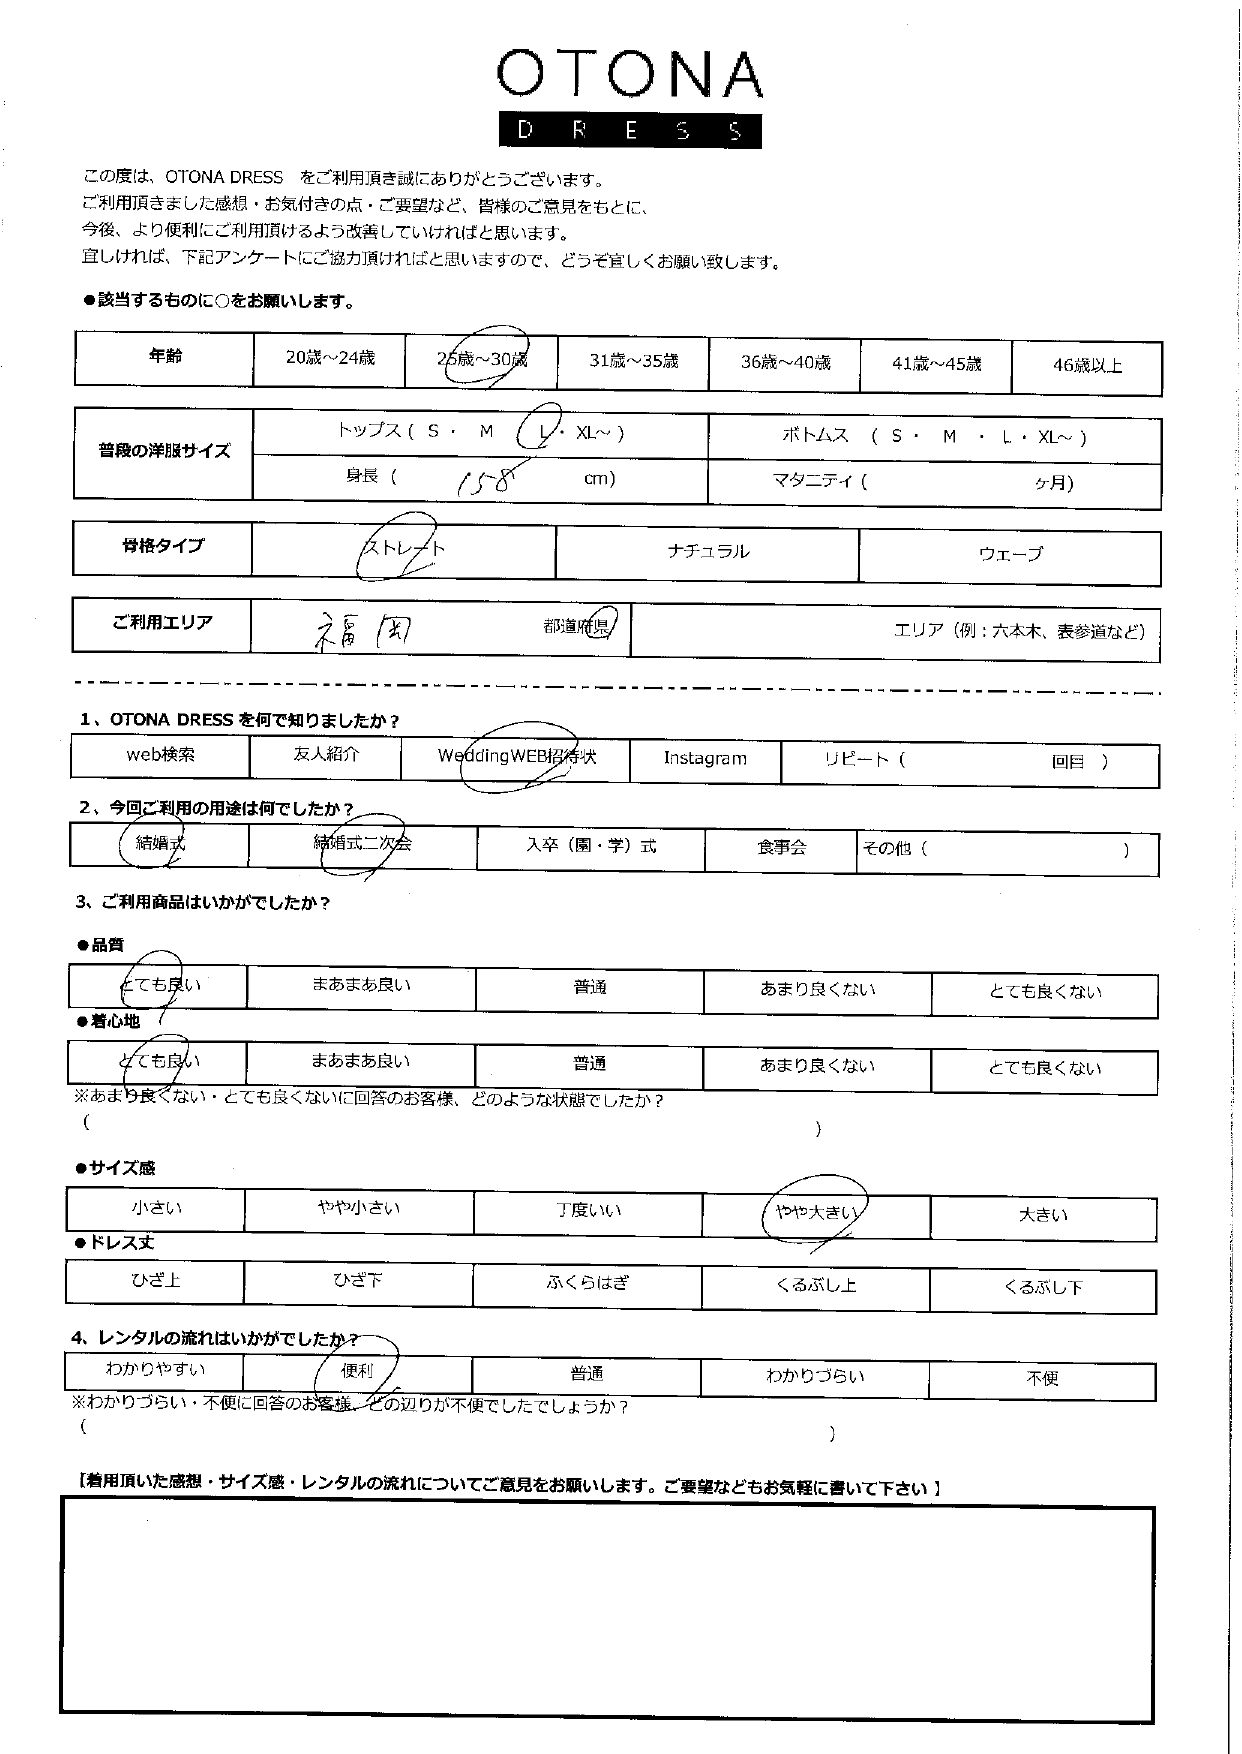 OTONA
DRESS
この度は、OTONA DRESS をご利用頂き誠にありがとうございます。
ご利用頂きました感想・お気付きの点・ご要望など、皆様のご意見をもとに、
今後、より便利にご利用頂けるよう改善していければと思います。
宜しければ、下記アンケートにご協力頂ければと思いますので、どうぞ宜しくお願い致します。
●該当するものに○をお願いします。
年齢 20歳～24歳 25歳～30歳 31歳～35歳 36歳～40歳 41歳～45歳 46歳以上
普段の洋服サイズ トップス ( S ・ M L ・ XL～ ) ボトムス ( S ・ M ・ L ・ XL～ )
身長 ( 158 cm) マタニティ ( ヶ月)
骨格タイプ ストレート ナチュラル ウェーブ
ご利用エリア 福岡 都道府県 エリア（例：六本木、表参道など）
1、OTONA DRESS を何で知りましたか？
web検索 友人紹介 WeddingWEB招待状 Instagram リピート ( 回目 )
2、今回ご利用の用途は何でしたか？
結婚式 結婚式二次会 入卒（園・学）式 食事会 その他 ( )
3、ご利用商品はいかがでしたか？
●品質
とても良い まあまあ良い 普通 あまり良くない とても良くない
●着心地
とても良い まあまあ良い 普通 あまり良くない とても良くない
※あまり良くない・とても良くないに回答のお客様、どのような状態でしたか？
( )
●サイズ感
小さい やや小さい 丁度いい やや大きい 大きい
●ドレス丈
ひざ上 ひざ下 ふくらはぎ くるぶし上 くるぶし下
4、レンタルの流れはいかがでしたか？
わかりやすい 便利 普通 わかりづらい 不便
※わかりづらい・不便に回答のお客様、どの辺りが不便でしたでしょうか？
( )
【着用頂いた感想・サイズ感・レンタルの流れについてご意見をお願いします。ご要望などもお気軽に書いて下さい】